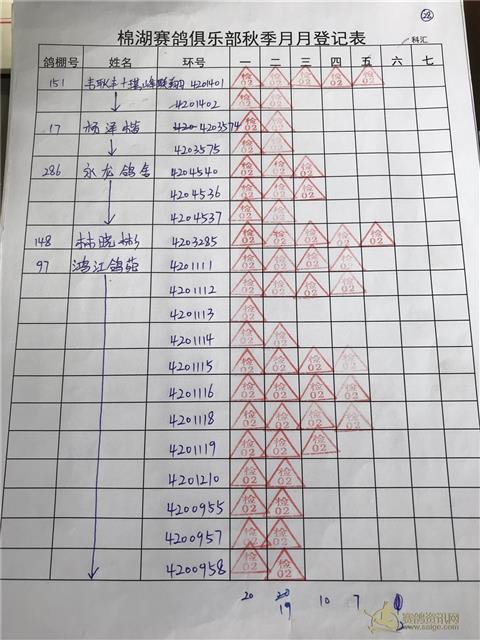 28
棉湖赛鸽俱乐部秋季月月登记表
科汇
鸽棚号 姓名 环号 一 二 三 四 五 六 七
151 4201401 检02 检02 检02 检02 检02
4201402 检02 检02
17 杨泽楷 4203574 检02 检02
4203575 检02 检02
286 永龙鸽舍 4204540 检02 检02 检02
4204536 检02 检02 检02
4204537 检02 检02
148 林晓彬 4203285 检02 检02 检02 检02 检02
97 鸿江鸽苑 4201111 检02 检02 检02 检02
4201112 检02 检02 检02 检02
4201113 检02
4201114 检02 检02
4201115 检02 检02 检02 检02
4201116 检02 检02 检02 检02
4201118 检02 检02 检02 检02
4201119 检02 检02 检02
4201210 检02 检02
4200955 检02 检02
4200957 检02 检02
4200958 检02 检02
20 19 10 7
赛鸽资讯网